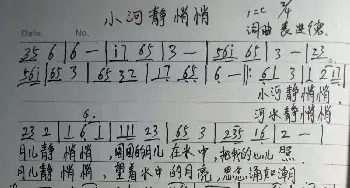 小河静悄悄
1=C 2/4
Date. No. 词曲 袁进德.
35 6 | 6 - | i7 65 | 3 - | 56i 65 | 3 - | 23
56i | 65 3 | 65 32 | 17 65 | 6 - :|| 61 3 | 1 217 |
小河静悄悄,
河水静悄悄
6.
23 2 | 1 6 | 111 23 | 65 3 | 235 16 | 2 - |
月儿静悄悄, 圆圆的月儿在水中, 把我的心儿照
月儿静悄悄, 望着水中的月亮, 思念涌如潮